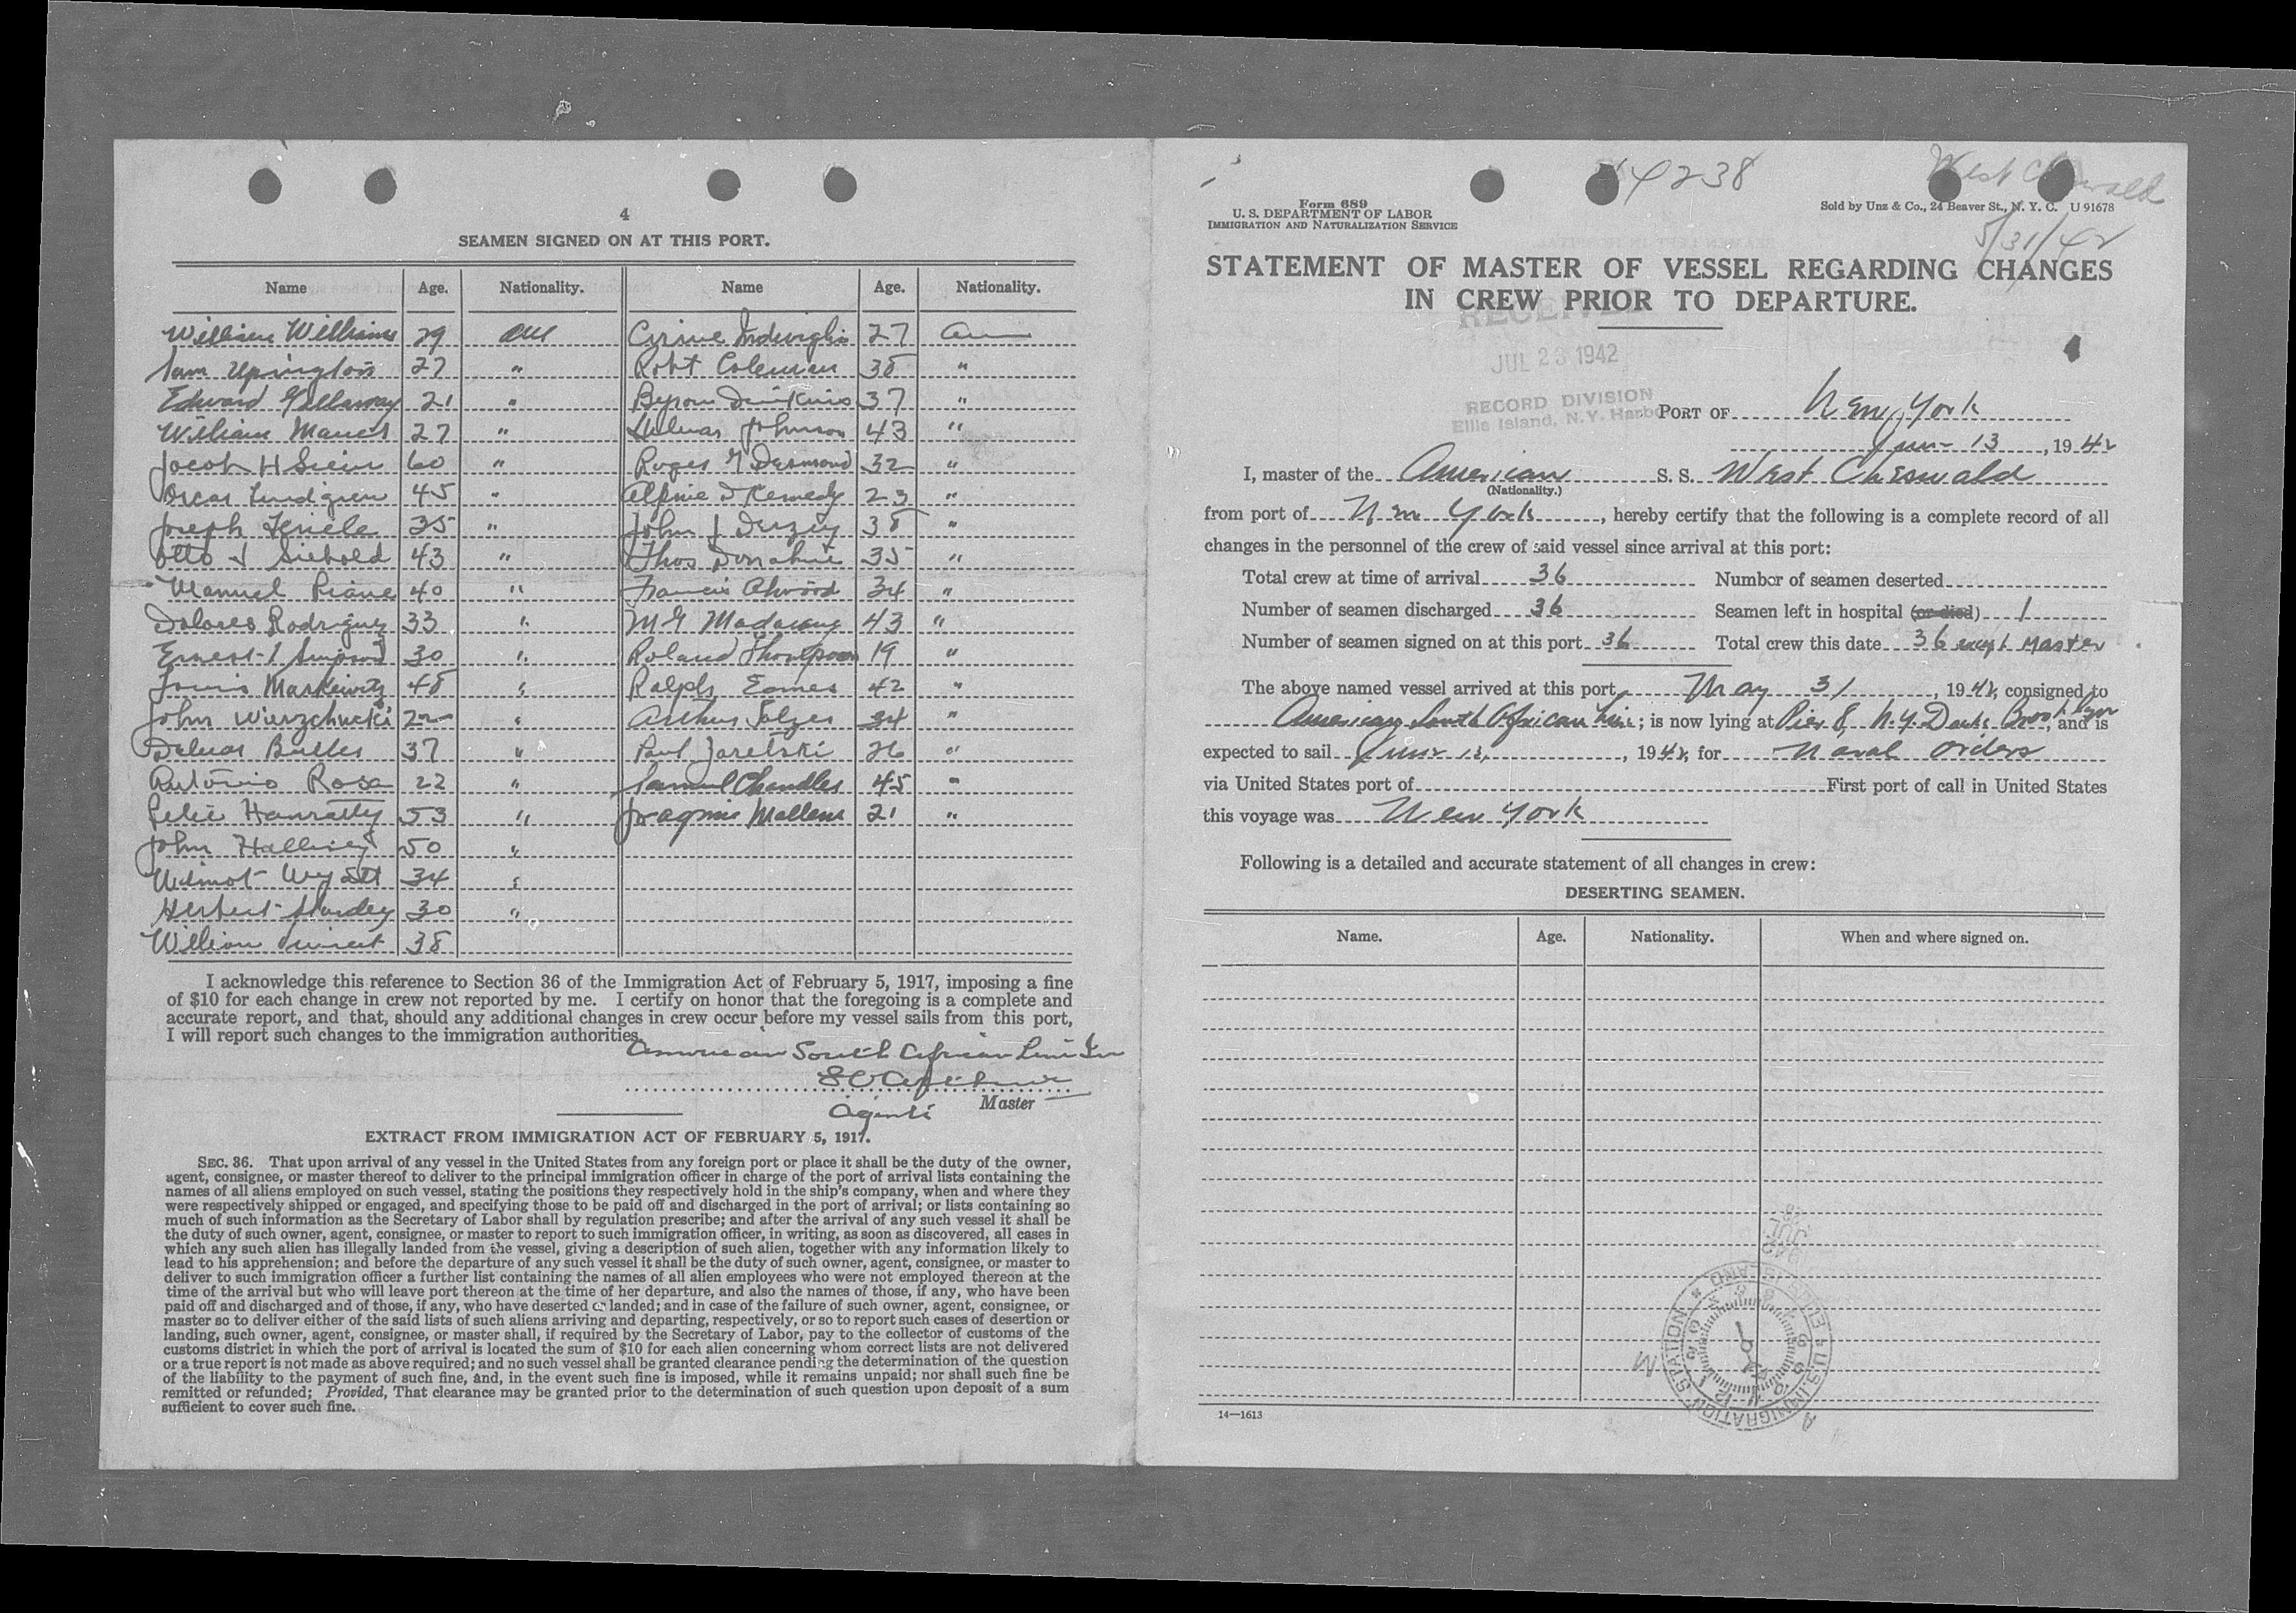 4
SEAMEN SIGNED ON AT THIS PORT.
Name Age. Nationality. Name Age. Nationality.
William Williams 29 am Cirine Indviglio 27 am
Sam Upington 27 " Robt Coleman 38 "
Edward Gallaway 21 " Byron Dinkins 37 "
William 27 " Johnson 43 "
Jacob H 60 " Roger Desmond 32 "
Oscar Lindgren 45 " Alpine Kennedy 23 "
Joseph 35 " John J 38 "
Otto Siebold 43 " Thos Donahue 35 "
Manuel 40 " Francis Atwood 34 "
Dolores Rodriguez 33 " M G 43 "
Ernest Simpson 30 " Roland Thompson 19 "
Louis Markewitz 48 " Ralph Eames 42 "
John Wierzchucki 22 " Arthur 34 "
Delmar Butler 37 " Paul Zaretski 26 "
Antonio Rosa 22 " Samuel Chandler 45 "
Hanratty 53 " 21 "
John 50 "
Wilmot Wyatt 34 "
Herbert 30 "
William 38
I acknowledge this reference to Section 36 of the Immigration Act of February 5, 1917, imposing a fine
of $10 for each change in crew not reported by me. I certify on honor that the foregoing is a complete and
accurate report, and that, should any additional changes in crew occur before my vessel sails from this port,
I will report such changes to the immigration authorities.
American South African Line Inc
Master
Agents
EXTRACT FROM IMMIGRATION ACT OF FEBRUARY 5, 1917.
SEC. 36. That upon arrival of any vessel in the United States from any foreign port or place it shall be the duty of the owner,
agent, consignee, or master thereof to deliver to the principal immigration officer in charge of the port of arrival lists containing the
names of all aliens employed on such vessel, stating the positions they respectively hold in the ship's company, when and where they
were respectively shipped or engaged, and specifying those to be paid off and discharged in the port of arrival; or lists containing so
much of such information as the Secretary of Labor shall by regulation prescribe; and after the arrival of any such vessel it shall be
the duty of such owner, agent, consignee, or master to report to such immigration officer, in writing, as soon as discovered, all cases in
which any such alien has illegally landed from the vessel, giving a description of such alien, together with any information likely to
lead to his apprehension; and before the departure of any such vessel it shall be the duty of such owner, agent, consignee, or master to
deliver to such immigration officer a further list containing the names of all alien employees who were not employed thereon at the
time of the arrival but who will leave port thereon at the time of her departure, and also the names of those, if any, who have been
paid off and discharged and of those, if any, who have deserted or landed; and in case of the failure of such owner, agent, consignee, or
master so to deliver either of the said lists of such aliens arriving and departing, respectively, or so to report such cases of desertion or
landing, such owner, agent, consignee, or master shall, if required by the Secretary of Labor, pay to the collector of customs of the
customs district in which the port of arrival is located the sum of $10 for each alien concerning whom correct lists are not delivered
or a true report is not made as above required; and no such vessel shall be granted clearance pending the determination of the question
of the liability to the payment of such fine, and, in the event such fine is imposed, while it remains unpaid; nor shall such fine be
remitted or refunded; Provided, That clearance may be granted prior to the determination of such question upon deposit of a sum
sufficient to cover such fine.
4238 West Cheswald
Form 689
U. S. DEPARTMENT OF LABOR
IMMIGRATION AND NATURALIZATION SERVICE
Sold by Unz & Co., 24 Beaver St., N. Y. C. U 91678
5/31/42
STATEMENT OF MASTER OF VESSEL REGARDING CHANGES
IN CREW PRIOR TO DEPARTURE.
RECEIVED
JUL 23 1942
RECORD DIVISION
Ellis Island, N.Y. Harbor
PORT OF New York
June 13, 1942
I, master of the American S. S. West Cheswald
(Nationality.)
from port of New York, hereby certify that the following is a complete record of all
changes in the personnel of the crew of said vessel since arrival at this port:
Total crew at time of arrival 36 Number of seamen deserted
Number of seamen discharged 36 Seamen left in hospital (or died) 1
Number of seamen signed on at this port 36 Total crew this date 36 except Master
The above named vessel arrived at this port May 31, 1942, consigned to
American South African Line; is now lying at Pier 8, N.Y. Docks Brooklyn, and is
expected to sail June 13, 1942, for Naval Orders
via United States port of First port of call in United States
this voyage was New York
Following is a detailed and accurate statement of all changes in crew:
DESERTING SEAMEN.
Name. Age. Nationality. When and where signed on.
U.S. IMMIGRATION STATION ELLIS ISLAND
14—1613